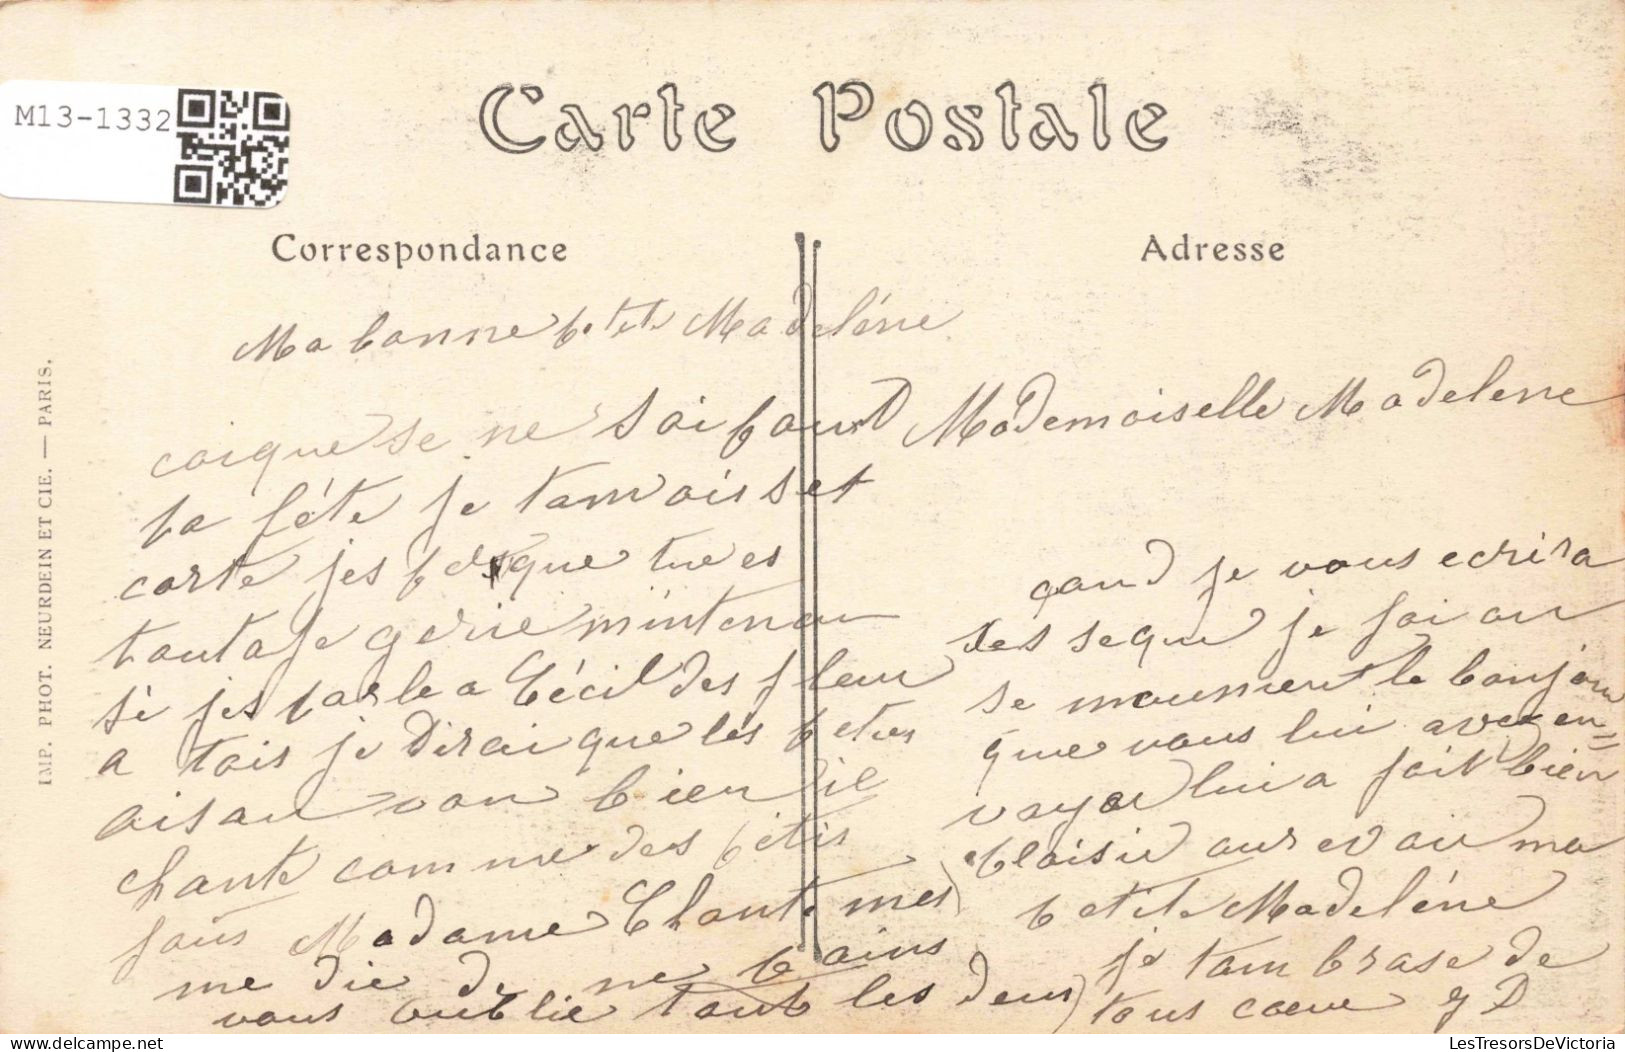 M13-1332
Carte Postale
Correspondance
Adresse
IMP. PHOT. NEURDEIN ET CIE. — PARIS.
Ma bonne petite Madeléne
coique se ne sai paut
ta féte je tanvois set
carte jespés que tu es
tantafe gerie mintenan
si jes parle a Cécil des fleur
a tois je dirai que lés peties
aisau von bien il
chante comme des petis
faus Madame Chant mes
me die de ne pains
vous oublie tout les deus
Mademoiselle Madelene
cand je vous ecrira
ses se que je fai au
se moument le bonjour
que vous lui avez en=
voyer lui a fait bien
plaisir aurevoir ma
petite Madeléne
je tambrase de
tous cœur g D
LesTresorsDeVictoria
delcampe.net
LesTresorsDeVictoria